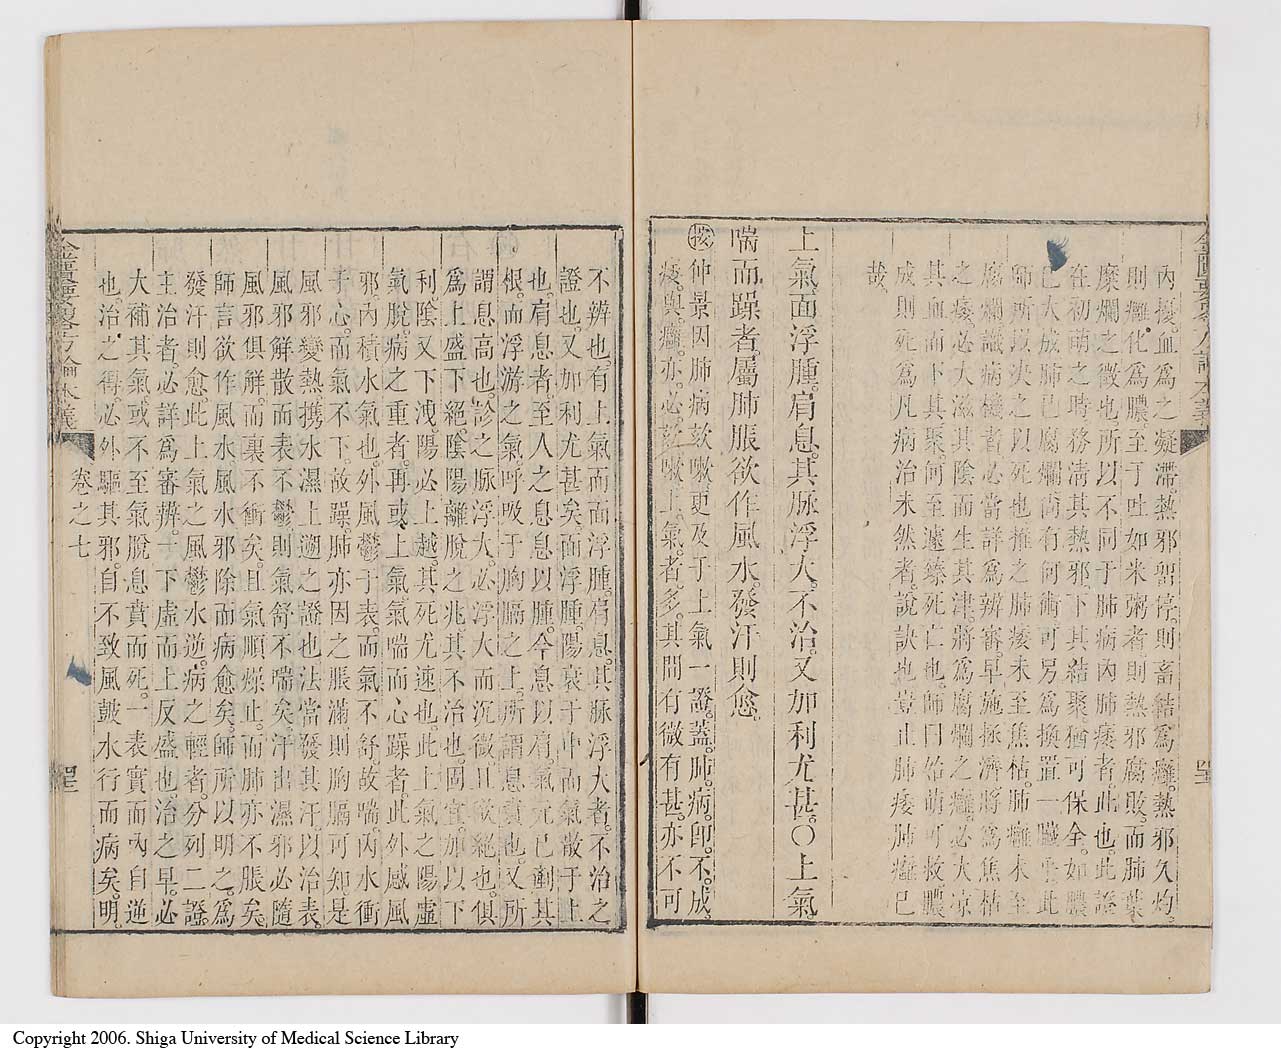 內擾。血爲之凝滯。熱邪留停。則畜結爲癰。熱邪久灼。
則癰化爲膿。至于吐如米粥者。則熱邪腐敗。而肺葉
糜爛之徵也。所以不同于肺病內肺痿者。此也。此證
在初萌之時。務清其熱邪。下其結聚。猶可保全。如膿
已大成。肺已腐爛。尚有何術可另爲換置一臟乎。此
師所以決之以死也。推之肺痿未至焦枯。肺癰未至
腐爛。識病機者。必當詳爲辨審。早施拯濟。將爲焦枯
之痿。必大滋其陰而生其津。將爲腐爛之癰。必大凉
其血而下其聚。何至遽臻死亡也。師曰始萌可救。膿
成則死。爲凡病治未然者。說訣也。豈止肺痿肺癰已
哉。
上氣面浮腫。肩息。其脉浮大。不治。又加利尤甚。〇上氣
喘而躁者。屬肺脹。欲作風水。發汗則愈。
按仲景因肺病欬嗽。更及于上氣一證。蓋肺病。卽不成
痿與癰。亦必欬嗽上氣者多。其間有微有甚。亦不可
不辨也。有上氣而面浮腫。肩息。其脉浮大者。不治之
證也。又加利尤甚矣。面浮腫。陽衰于中而氣散于上
也。肩息者。至人之息息以腫。今息以肩。氣元已剷其
根。而浮游之氣呼吸于胸膈之上。所謂息賁也。又所
謂息高也。診之脉浮大。必浮大而沉微且欲絕也。俱
爲上盛下絕。陰陽離脫之兆。其不治也。固宜。加以下
利。陰又下洩。陽必上越。其死尤速也。此上氣之陽虛
氣脫。病之重者。再或上氣。氣喘而心躁者。此外感風
邪。內積水氣也。外風鬱于表。而氣不舒。故喘。內水衝
于心。而氣不下。故躁。肺亦因之脹滿。則胸膈可知。是
風邪變熱。携水濕上遡之證也。法當發其汗。以治表。
風邪解散而表不鬱。則氣舒不喘矣。汗出濕邪必隨
風邪俱解。而裏不衝矣。且氣順燥止。而肺亦不脹矣。
師言欲作風水。風水邪除而病愈矣。師所以明之。爲
發汗則愈。此上氣之風鬱水逆。病之輕者。分列二證。
主治者。必詳爲審辨。一下虛而上反盛也。治之早。必
大補其氣。或不至氣脫息賁而死。一表實而內自逆
也。治之得。必外驅其邪。自不致風鼓水行而病矣。明
金匱要畧方論本義
卷之七